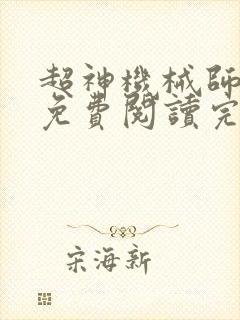 超神機械師
免費閱讀完
宋海新